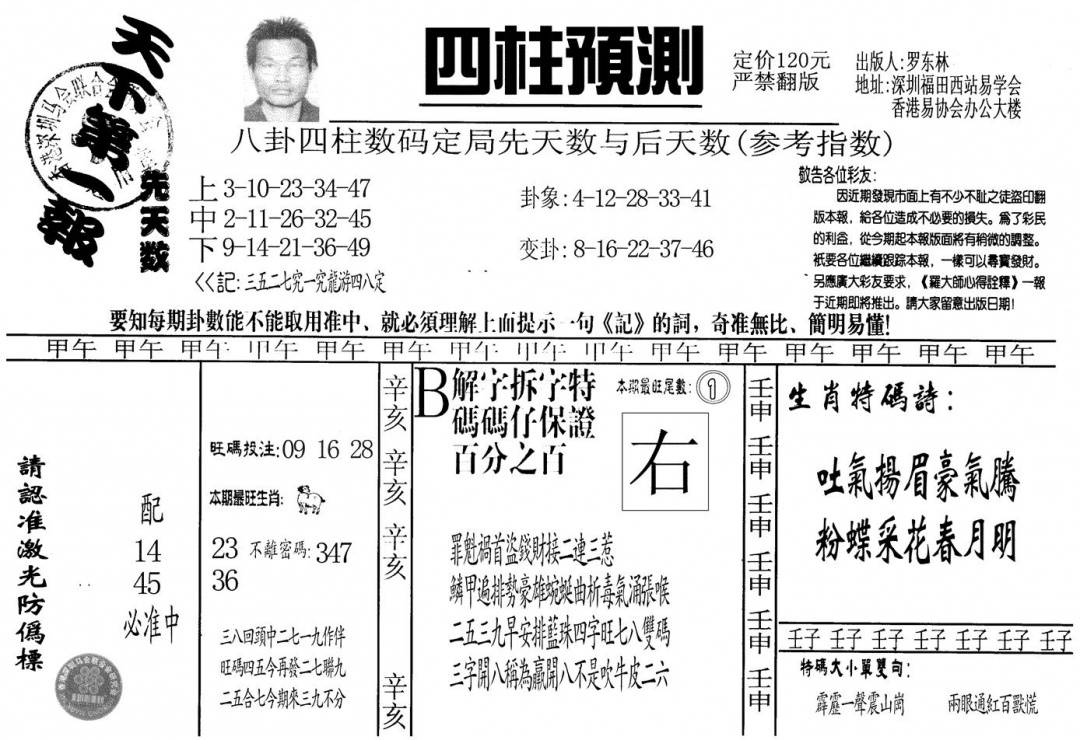 天下第一報
四柱預測
定价120元
严禁翻版
出版人:罗东林
地址:深圳福田西站易学会
香港易协会办公大楼
八卦四柱数码定局先天数与后天数(参考指数)
先天数
上3-10-23-34-47
中2-11-26-32-45
下9-14-21-36-49
<<記:三五二七究一究龍游四八定
卦象:4-12-28-33-41
变卦:8-16-22-37-46
敬告各位彩友:
因近期發現市面上有不少不耻之徒盜印翻
版本報,給各位造成不必要的損失。爲了彩民
的利益,從今期起本報版面將有稍微的調整。
衹要各位繼續跟踪本報,一樣可以尋寶發財。
另應廣大彩友要求,《羅大師心得詮釋》一報
于近期即將推出。請大家留意出版日期!
要知每期卦數能不能取用准中、就必須理解上面提示一句《記》的詞,奇准無比、簡明易懂!
甲午 甲午 甲午 甲午 甲午 甲午 甲午 甲午 甲午 甲午 甲午 甲午 甲午 甲午 甲午
請認准激光防僞標
配
14
45
必准中
旺碼投注:09 16 28
本期最旺生肖:
23 不離密碼:347
36
三八回頭中二七一九作伴
旺碼四五今再發二七聯九
二五合七今期來三九不分
辛亥
辛亥
辛亥
辛亥
B
解字拆字特
碼碼仔保證
百分之百
本期最旺尾數:①
右
罪魁禍首盜錢財接二連三惹
鱗甲遍排勢豪雄蜿蜒曲析毒氣涌張喉
二五三九早安排藍珠四字旺七八雙碼
三字開八稱為贏開八不是吹牛皮二六
壬申
壬申
壬申
壬申
壬申
壬申
生肖特碼詩:
吐氣揚眉豪氣騰
粉蝶采花春月明
壬子 壬子 壬子 壬子 壬子 壬子 壬子
特碼大小單雙句:
霹靂一聲震山崗
兩眼通紅百獸慌